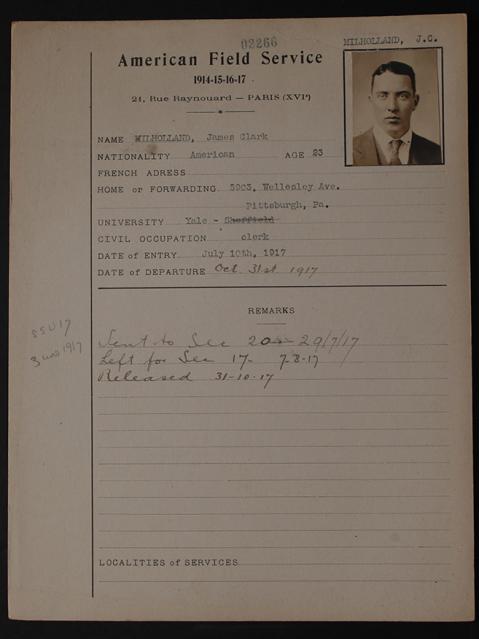 02266
MILHOLLAND, J.C.
American Field Service
1914-15-16-17
21, Rue Raynouard — PARIS (XVIᵉ)
NAME MILHOLLAND, James Clark
NATIONALITY American AGE 23
FRENCH ADRESS
HOME or FORWARDING 5903, Wellesley Ave.
Pittsburgh, Pa.
UNIVERSITY Yale - Sheffield
CIVIL OCCUPATION clerk
DATE of ENTRY July 10th, 1917
DATE of DEPARTURE Oct 31st 1917
REMARKS
SSU 17
3 1917
Sent to Sec 20 29/7/17
Left for Sec 17- 7-8-17
Released 31-10-17
LOCALITIES of SERVICES